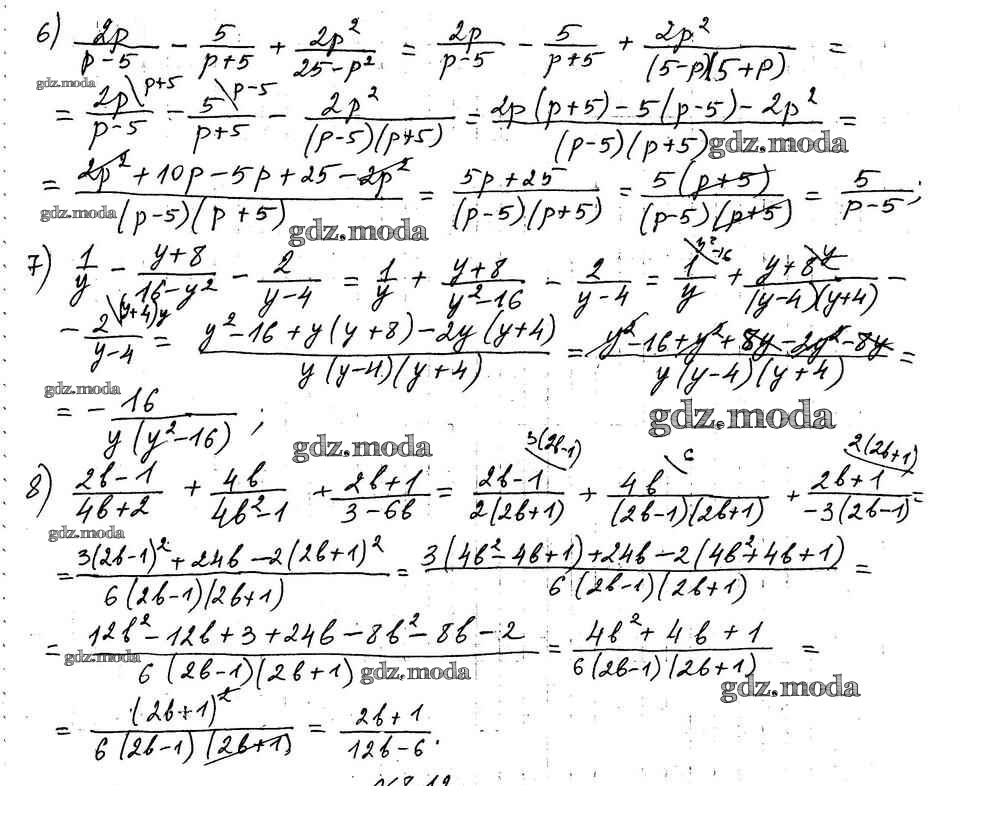 6) 2p/(p-5) - 5/(p+5) + 2p²/(25-p²) = 2p/(p-5) - 5/(p+5) + 2p²/((5-p)(5+p)) =
gdz.moda
= 2p\p+5/(p-5) - 5\p-5/(p+5) - 2p²/((p-5)(p+5)) = (2p(p+5)-5(p-5)-2p²)/((p-5)(p+5)) =
gdz.moda
= (2p²+10p-5p+25-2p²)/((p-5)(p+5)) = (5p+25)/((p-5)(p+5)) = 5(p+5)/((p-5)(p+5)) = 5/(p-5);
gdz.moda
gdz.moda
7) 1/y - (y+8)/(16-y²) - 2/(y-4) = 1/y + (y+8)/(y²-16) - 2/(y-4) = 1\y²-16/y + (y+8)\y/((y-4)(y+4)) -
- 2\(y+4)y/(y-4) = (y²-16+y(y+8)-2y(y+4))/(y(y-4)(y+4)) = (y²-16+y²+8y-2y²-8y)/(y(y-4)(y+4)) =
gdz.moda
gdz.moda
= - 16/(y(y²-16));
gdz.moda
8) (2b-1)/(4b+2) + 4b/(4b²-1) + (2b+1)/(3-6b) = (2b-1)\3(2b-1)/(2(2b+1)) + 4b\6/((2b-1)(2b+1)) + (2b+1)\2(2b+1)/(-3(2b-1)) =
gdz.moda
= (3(2b-1)²+24b-2(2b+1)²)/(6(2b-1)(2b+1)) = (3(4b²-4b+1)+24b-2(4b²+4b+1))/(6(2b-1)(2b+1)) =
= (12b²-12b+3+24b-8b²-8b-2)/(6(2b-1)(2b+1)) = (4b²+4b+1)/(6(2b-1)(2b+1)) =
gdz.moda
gdz.moda
gdz.moda
= (2b+1)²/(6(2b-1)(2b+1)) = (2b+1)/(12b-6).